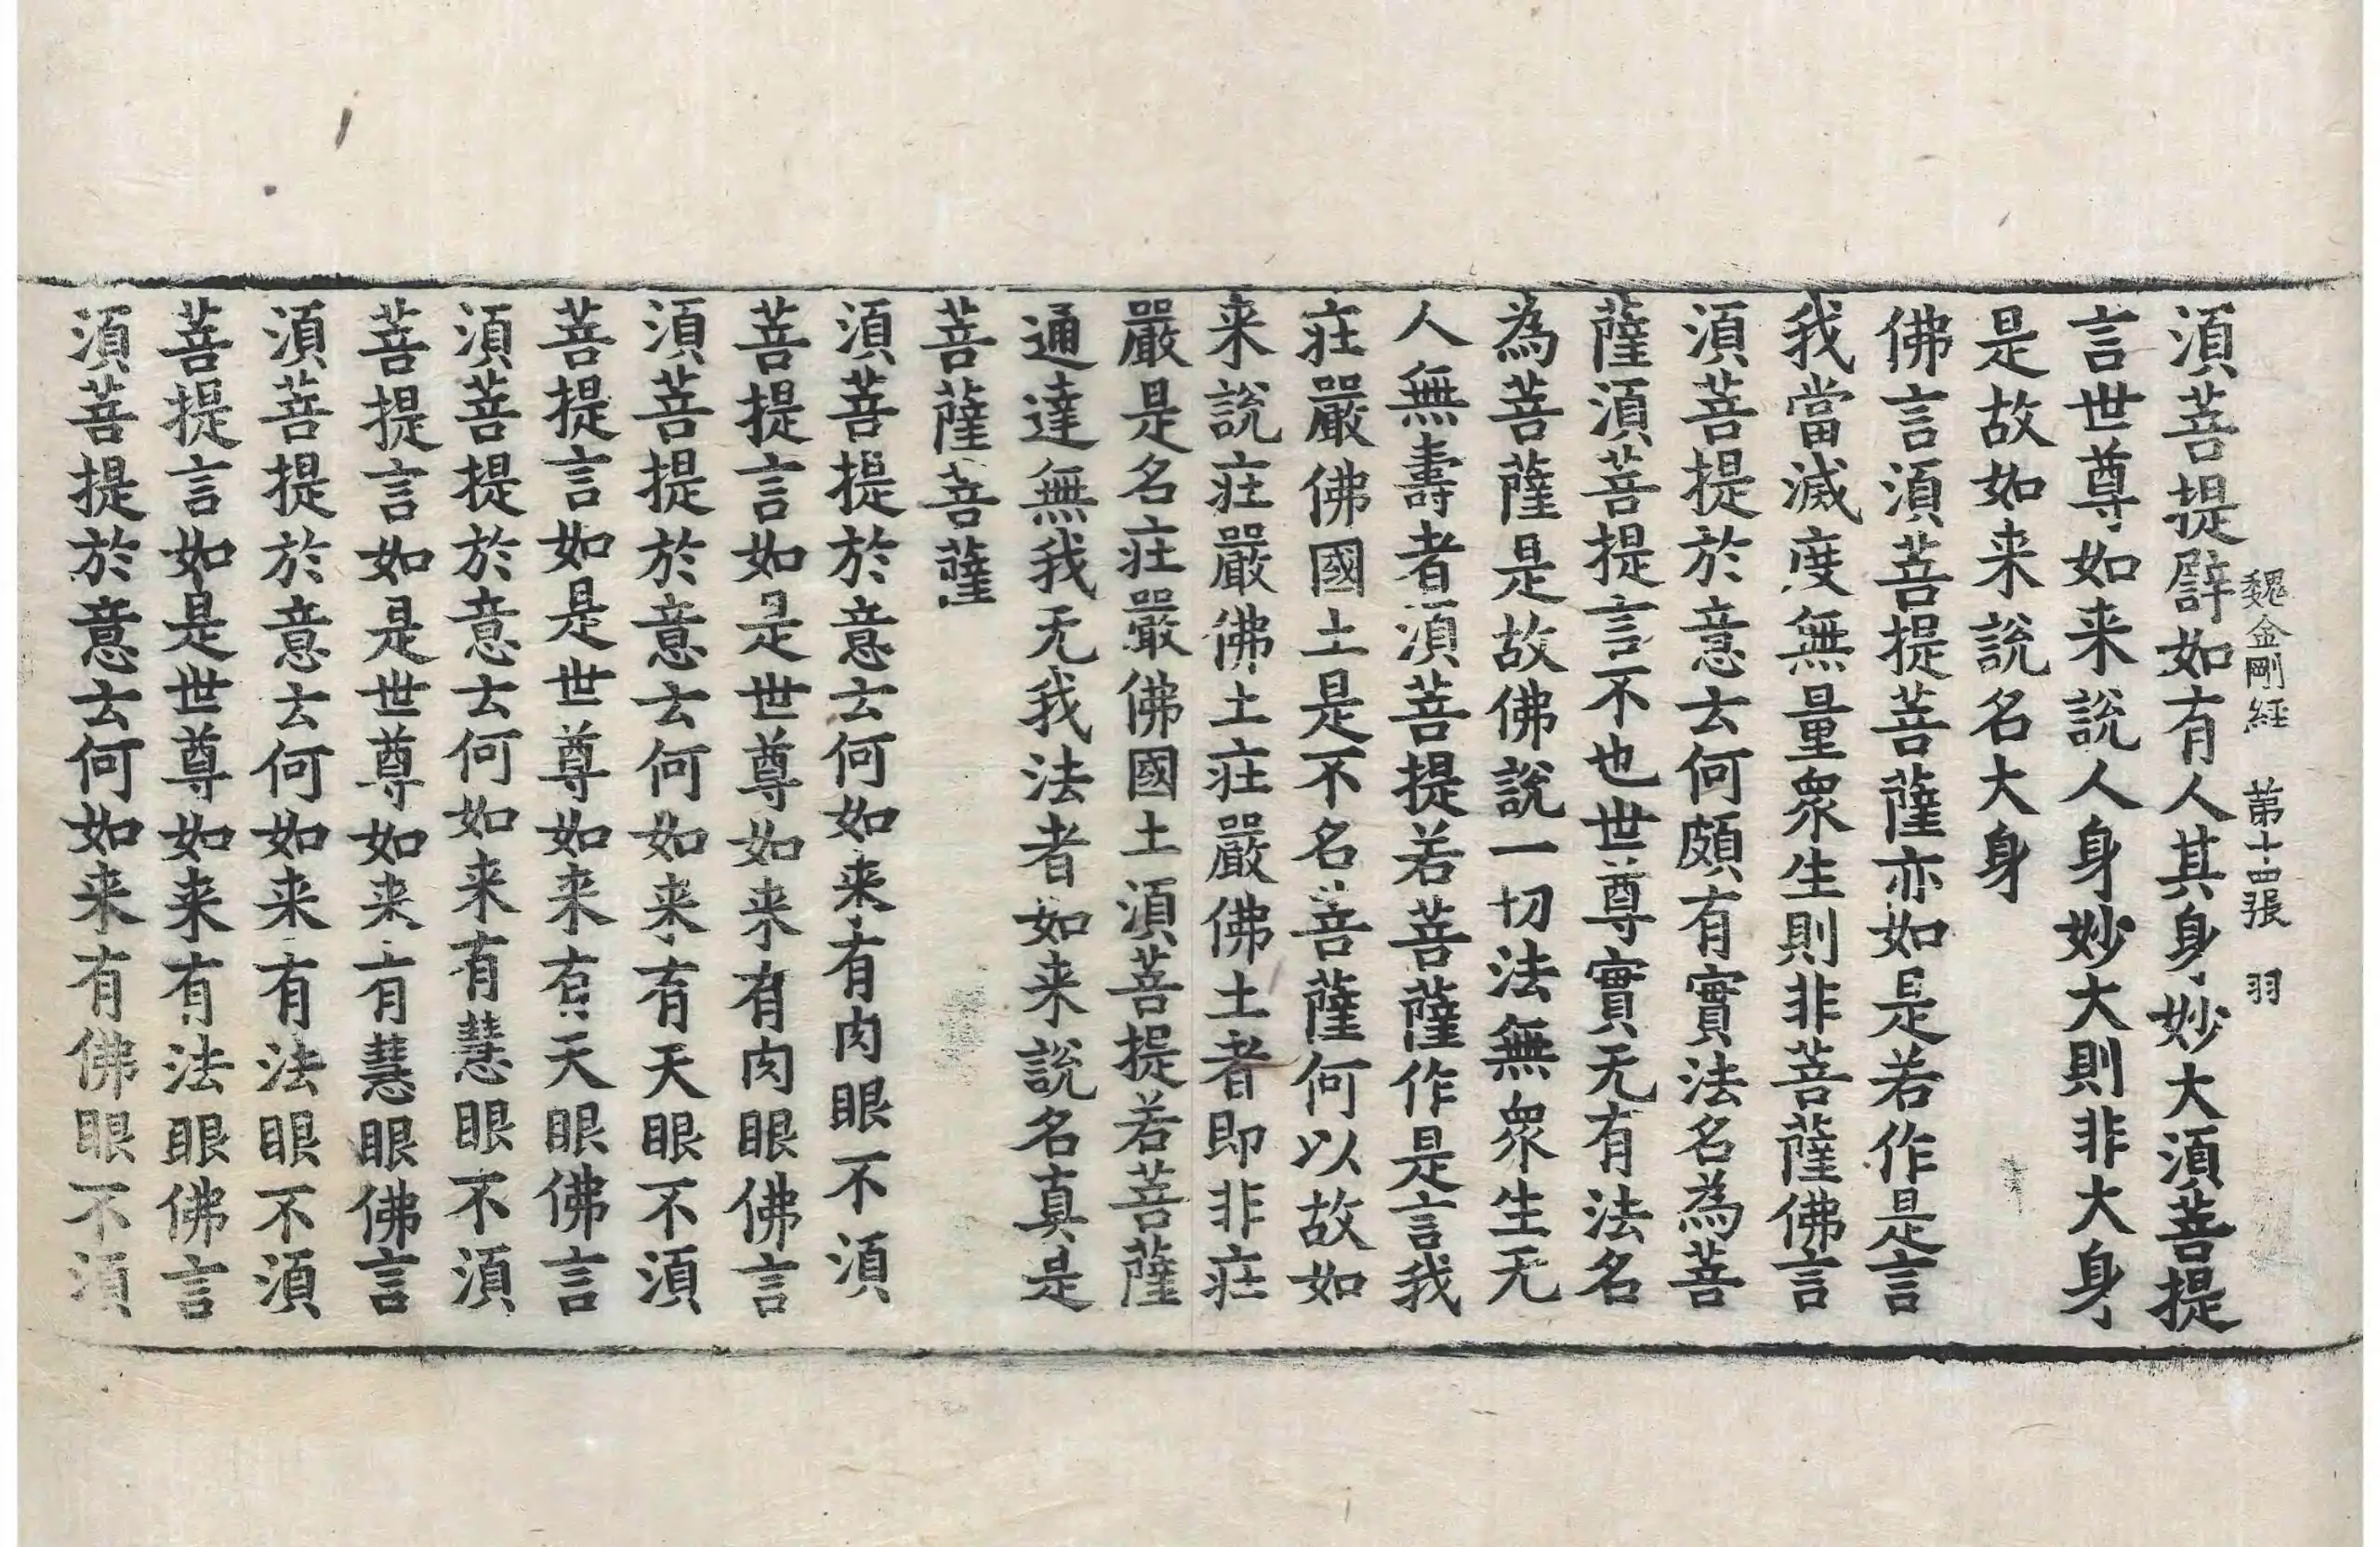 魏金剛経　苐十四張　羽
湏菩提譬如有人其身妙大湏菩提
言世尊如来說人身妙大則非大身
是故如来說名大身
佛言湏菩提菩薩亦如是若作是言
我當滅度無量衆生則非菩薩佛言
湏菩提於意云何頗有實法名為菩
薩湏菩提言不也世尊實无有法名
為菩薩是故佛說一切法無衆生无
人無壽者湏菩提若菩薩作是言我
莊嚴佛國土是不名菩薩何以故如
来說莊嚴佛土莊嚴佛土者即非莊
嚴是名莊嚴佛國土湏菩提若菩薩
通達無我无我法者如来說名真是
菩薩菩薩
湏菩提於意云何如来有肉眼不湏
菩提言如是世尊如来有肉眼佛言
湏菩提於意云何如来有天眼不湏
菩提言如是世尊如来有天眼佛言
湏菩提於意云何如来有慧眼不湏
菩提言如是世尊如来有慧眼佛言
湏菩提於意云何如来有法眼不湏
菩提言如是世尊如来有法眼佛言
湏菩提於意云何如来有佛眼不湏